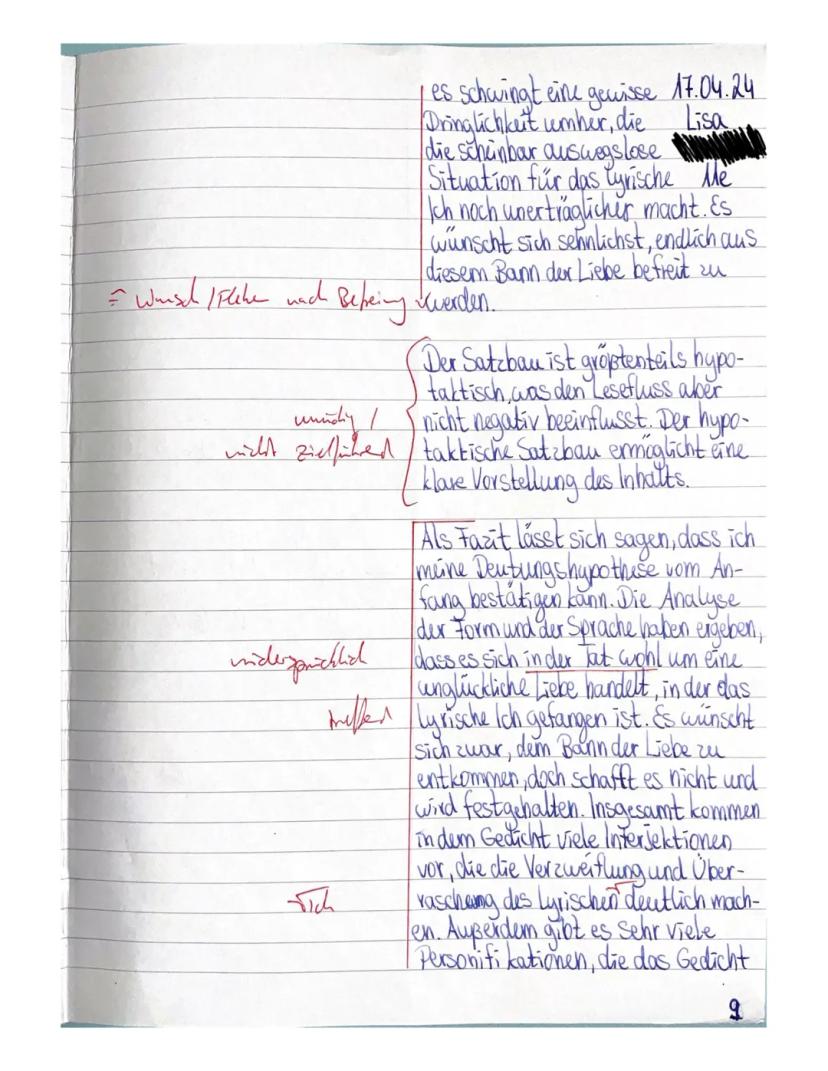 es schwingt eine gewisse 17.04.24
Dringlichkeit umher, die Lisa
die scheinbar auswegslose
Situation für das lyrische 11e
Ich noch unerträglicher macht. Es
wünscht sich sehnlichst, endlich aus
diesem Bann der Liebe befreit zu
≙ Wunsch / Flehe nach Befreiung werden.
Der Satzbau ist größtenteils hypo-
taktisch, was den Lesefluss aber
nicht negativ beeinflusst. Der hypo-
nicht zielführend taktische Satzbau ermöglicht eine
klare Vorstellung des Inhalts.
Als Fazit lässt sich sagen, dass ich
meine Deutungshypothese vom An-
fang bestätigen kann. Die Analyse
der Form und der Sprache haben ergeben,
widersprüchlich dass es sich in der Tat wohl um eine
unglückliche Liebe handelt, in der das
treffend lyrische Ich gefangen ist. Es wünscht
sich zwar, dem Bann der Liebe zu
entkommen, doch schafft es nicht und
wird festgehalten. Insgesamt kommen
in dem Gedicht viele Interjektionen
vor, die die Verzweiflung und Über-
√Ich raschung des Lyrischen √ deutlich mach-
en. Außerdem gibt es sehr viele
Personifikationen, die das Gedicht
9